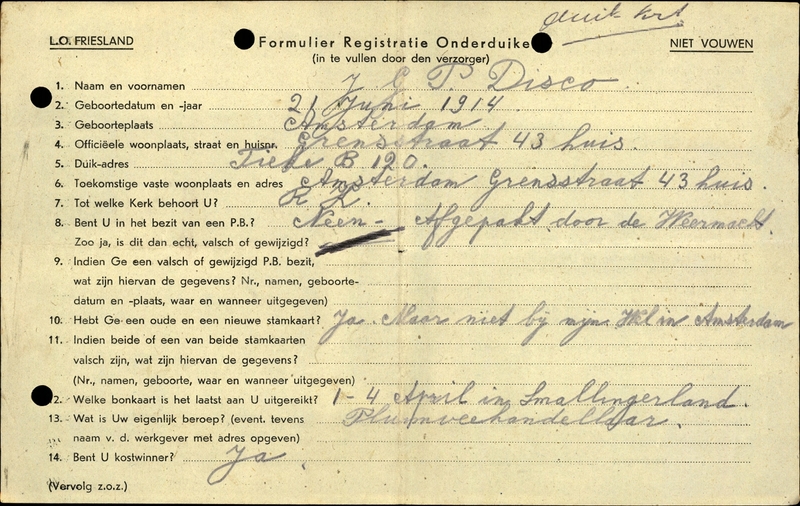 duik krt
L.O. FRIESLAND
Formulier Registratie Onderduike
NIET VOUWEN
(in te vullen door den verzorger)
1. Naam en voornamen J G P. Disco
2. Geboortedatum en -jaar 21 Juni 1914.
3. Geboorteplaats Amsterdam
4. Officiëele woonplaats, straat en huisnr. Grensstraat 43 huis.
5. Duik-adres Tieke B 120.
6. Toekomstige vaste woonplaats en adres Amsterdam Grensstraat 43 huis.
7. Tot welke Kerk behoort U? R K.
8. Bent U in het bezit van een P.B.? Neen - Afgepakt door de Weermacht.
Zoo ja, is dit dan echt, valsch of gewijzigd?
9. Indien Ge een valsch of gewijzigd P.B. bezit,
wat zijn hiervan de gegevens? Nr., namen, geboorte-
datum en -plaats, waar en wanneer uitgegeven)
10. Hebt Ge een oude en een nieuwe stamkaart? Ja. Maar niet bij mijn in Amsterdam
11. Indien beide of een van beide stamkaarten
valsch zijn, wat zijn hiervan de gegevens?
(Nr., namen, geboorte, waar en wanneer uitgegeven)
2. Welke bonkaart is het laatst aan U uitgereikt? 1-4 April in Smallingerland.
13. Wat is Uw eigenlijk beroep? (event. tevens Pluimveehandellaar.
naam v. d. werkgever met adres opgeven)
14. Bent U kostwinner? Ja.
(Vervolg z.o.z.)